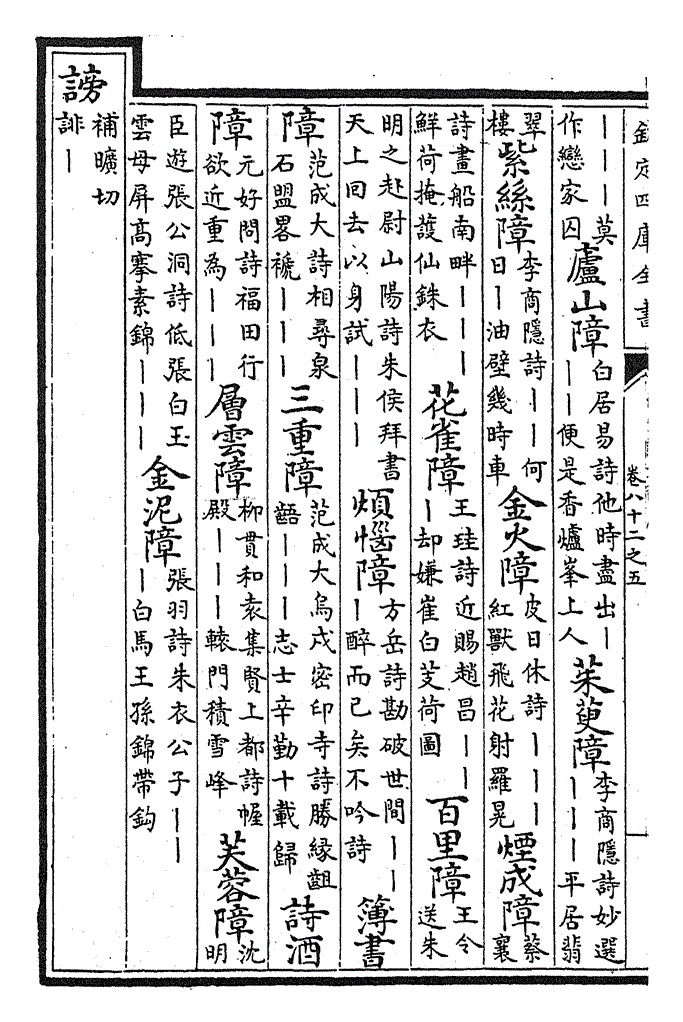 欽定四庫全書 卷八十二之五
｜｜｜莫作戀家囚 廬山障 白居易詩他時盡出｜｜｜便是香爐峯上人 茱萸障 李商隱詩妙選｜｜｜平居翡
翠樓 紫絲障 李商隱詩｜｜何日｜油壁幾時車 金火障 皮日休詩｜｜｜紅獸飛花射羅晃 煙成障 蔡襄
詩畫船南畔｜｜｜鮮荷掩護仙銖衣 花雀障 王珪詩近賜趙昌｜｜｜却嫌崔白芰荷圖 百里障 王令送朱
明之赴尉山陽詩朱侯拜書天上回去以身試｜｜｜ 煩惱障 方岳詩勘破世間｜｜｜醉而已矣不吟詩 簿書
障 范成大詩相尋泉石盟畧褫｜｜｜ 三重障 范成大烏戍密印寺詩勝緣齟齬｜｜｜志士辛勤十載歸 詩酒
障 元好問詩福田行欲近重為｜｜｜ 層雲障 柳貫和袁集賢上都詩幄殿｜｜｜轅門積雪峰 芙蓉障 沈明
臣遊張公洞詩低張白玉雲母屏高搴素錦｜｜｜ 金泥障 張羽詩朱衣公子｜｜｜白馬王孫錦帶鈎
謗 補曠切誹｜